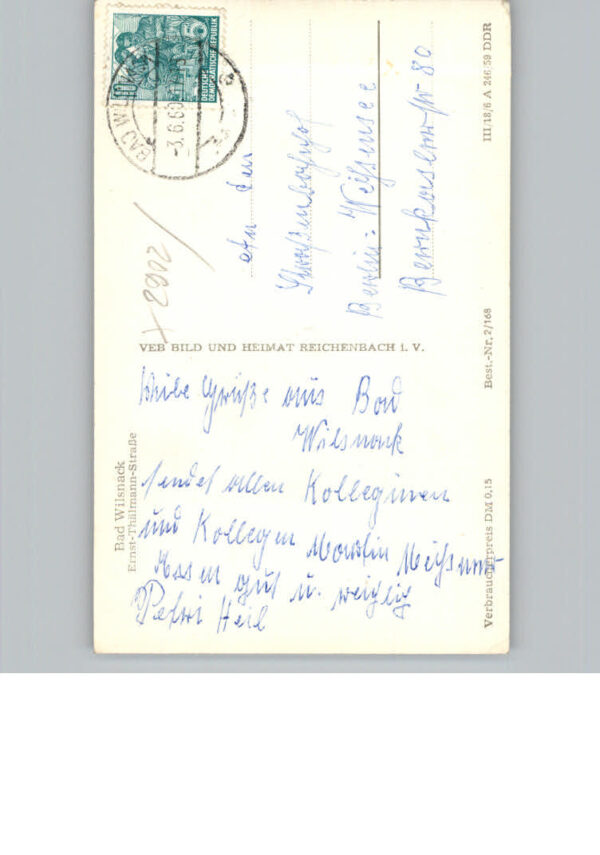 DEUTSCHE
DEMOKRATISCHE REPUBLIK
5
BAD WILSNACK
-3.6.60
a
An den
Straßenbahnhof
Berlin-Weißensee
Bernkastlerstr 80
III/18/6 A 246/59 DDR
2902
VEB BILD UND HEIMAT REICHENBACH i. V.
Best.-Nr. 2/168
Bad Wilsnack
Ernst-Thälmann-Straße
Verbraucherpreis DM 0,15
Grüße aus Bad
Wilsnack
sendet allen Kolleginen
und Kollegen Martin Meißner
Essen gut u.
Petri Heil